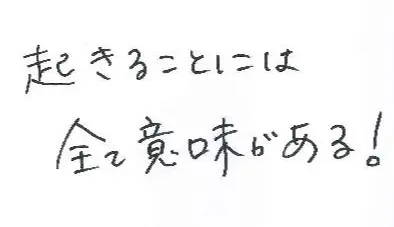 起きることには
全て意味がある!